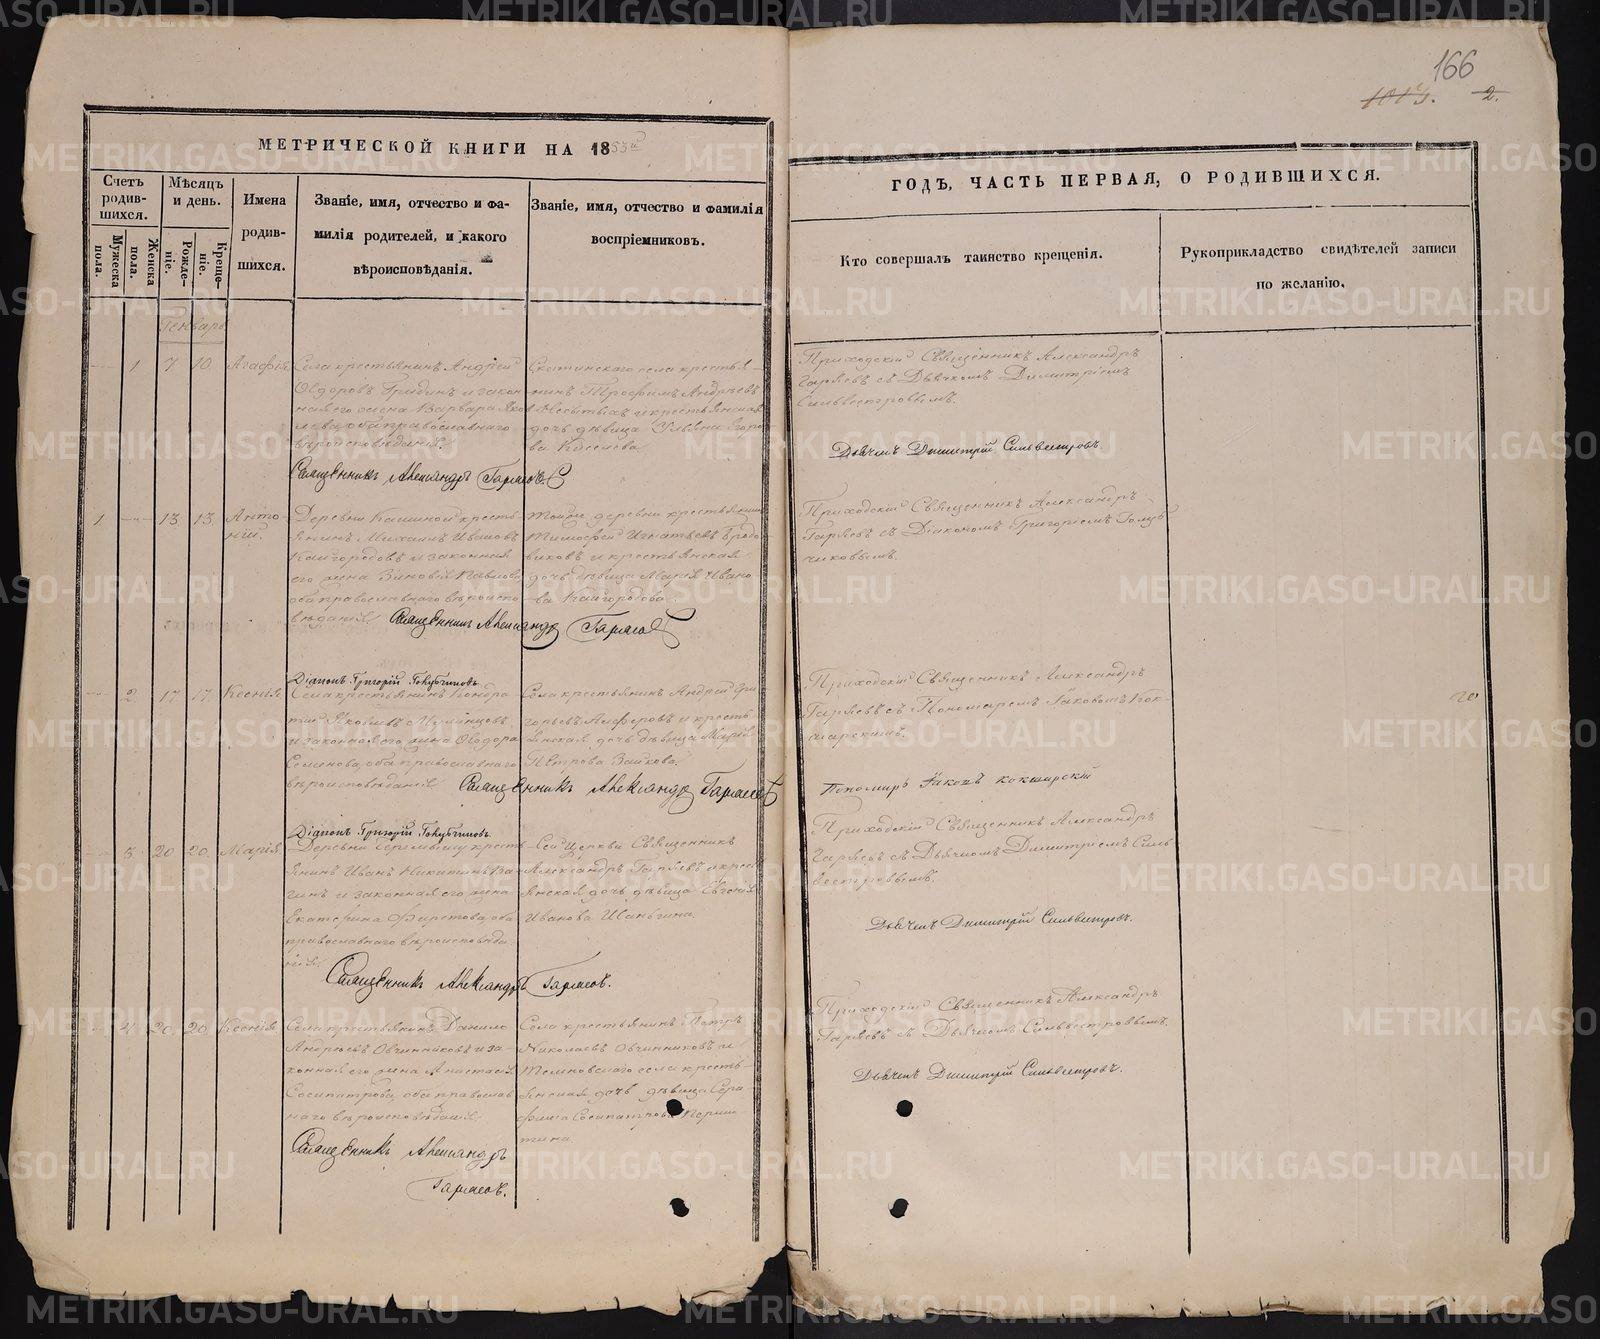 166
1014. 2.
МЕТРИЧЕСКОЙ КНИГИ НА 1853й
ГОДЪ, ЧАСТЬ ПЕРВАЯ, О РОДИВШИХСЯ.
Счетъ родив-шихся.
Мужеска пола.
Женска пола.
Мѣсяцъ и день.
Рожде-ніе.
Креще-ніе.
Имена
родив-
шихся.
Званіе, имя, отчество и фа-
милія родителей, и какого
вѣроисповѣданія.
Званіе, имя, отчество и фамилія
воспріемниковъ.
Кто совершалъ таинство крещенія.
Рукоприкладство свидѣтелей записи
по желанію.
Генварь
1 7 10. Агафія
Села крестьянинъ Андрей
Ѳедоровъ и закон-
ная его жена Варвара Яков
лева, оба православнаго
вѣроисповѣданія.
села крестья-
нинъ Трофимъ Андреевъ
и крестьянская
дочь дѣвица Ульяна Егоро
ва Киселева.
Приходскій Священникъ Александръ
Гаряевъ съ Дьячкомъ Димитріемъ
Сильвестровымъ.
Дьячекъ Димитрій Сильвестровъ.
Священникъ Александръ
1 13 13 Анто-
ній.
Деревни крестья-
янинъ Михаилъ Ивановъ
Кайгородовъ и законная
его жена Зиновія Павлова
оба православнаго вѣроиспо-
вѣданія.
Тойже деревни крестьянинъ
Тимофей Игнатьевъ
и крестьянская
дочь дѣвица Марія Ивано
ва Кайгородова.
Приходскій Священникъ Александръ
Гаряевъ съ Діакономъ Григоріемъ Голуб
чиковымъ.
Священникъ Александръ
Діаконъ Григорій Голубчиковъ
2 17 17 Ксенія
Села крестьянинъ Кондра
тій Яковлевъ
и законная его жена Ѳеодора
Семенова, оба православнаго
вѣроисповѣданія.
Села крестьянинъ Андрей Гри
горьевъ Алферовъ и кресть-
янская дочь дѣвица Марія
Петрова Зайкова.
Приходскій Священникъ Александръ
Гаряевъ съ Пономаремъ Іаковомъ Кок-
шарскимъ.
Пономарь Іаковъ Кокшарскій
Священникъ Александръ
Діаконъ Григорій Голубчиковъ
3 20 20 Марія
Деревни крестъ-
янинъ Иванъ Никитинъ Ва
гинъ и законная его жена
Екатерина оба
православнаго вѣроисповѣда-
нія.
Сей Церкви Священникъ
Александръ Гаряевъ и крест
янская дочь дѣвица Евгенія
Иванова Иваньгина.
Приходскій Священникъ Александръ
Гаряевъ съ Дьячкомъ Димитріемъ Силь-
вестровымъ.
Дьячекъ Димитрій Сильвестровъ.
Священникъ Александръ
4 20 20 Ксенія
Села крестьянинъ Данило
Андреевъ Овчинниковъ и за-
конная его жена Анастасія
Сосипатрова, оба православ
наго вѣроисповѣданія.
Села крестьянинъ Петръ
Николаевъ Овчинниковъ и
села кресть-
янская дочь дѣвица Сера
фима Сосипатрова
Приходскій Священникъ Александръ
Гаряевъ съ Дьячкомъ Сильвестровымъ.
Дьячекъ Димитрій Сильвестровъ.
Священникъ Александръ
METRIKI.GASO-URAL.RU